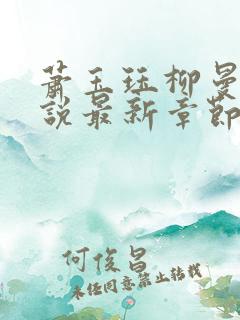 萧玉珏柳曼
说最新章节
何俊昌
未经同意禁止转载